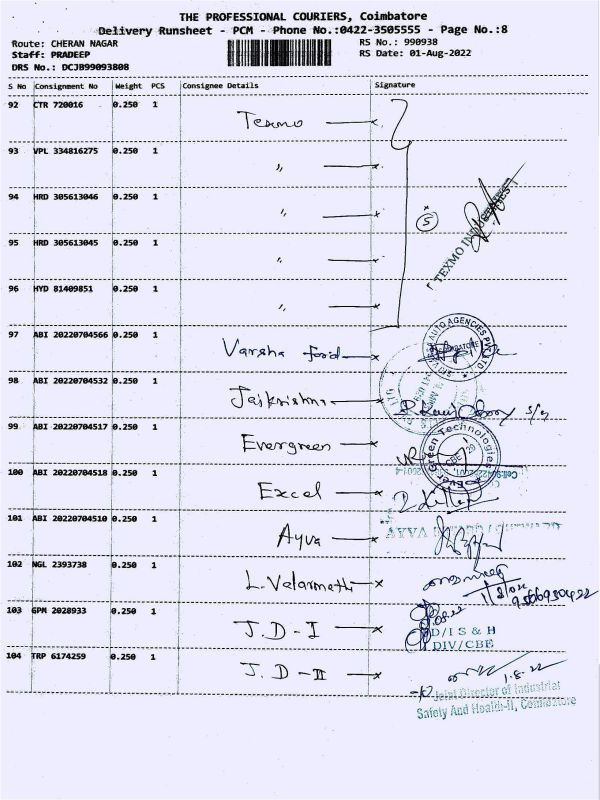 THE PROFESSIONAL COURIERS, Coimbatore
Delivery Runsheet - PCM - Phone No.:0422-3505555 - Page No.:8
Route: CHERAN NAGAR
RS No.: 990938
Staff: PRADEEP
RS Date: 01-Aug-2022
DRS No.: DCJB99093808
S No Consignment No Weight PCS Consignee Details Signature
92 CTR 720016 0.250 1 Texmo
93 VPL 334816275 0.250 1 "
94 HRD 305613046 0.250 1 "
5
TEXMO INDUSTRIES
95 HRD 305613045 0.250 1 "
96 HYD 81409851 0.250 1 "
97 ABI 20220704566 0.250 1 Varsha ford
98 ABI 20220704532 0.250 1 Jaikrishna
99 ABI 20220704517 0.250 1 Evergreen
EverGreen Technologies
100 ABI 20220704518 0.250 1 Excel
101 ABI 20220704510 0.250 1 Ayva
102 NGL 2393738 0.250 1 L. Valarmathi
103 GPM 2028933 0.250 1 J.D-I
D/I S & H
DIV/CBE
104 TRP 6174259 0.250 1 J.D-II
1.8.22
Joint Director of Industrial
Safety And Health-II, Coimbatore